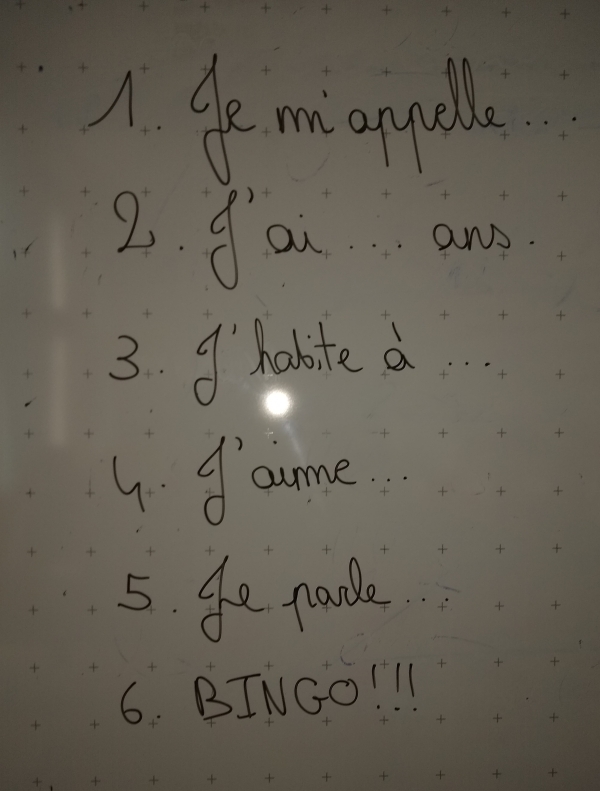 1. Je m'appelle...
2. J'ai ... ans.
3. J'habite à ...
4. J'aime...
5. Je parle...
6. BINGO!!!